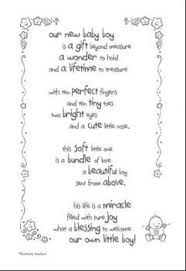 our new baby boy
is a gift beyond measure
a wonder to hold
and a lifetime to treasure
with ten perfect fingers
and ten tiny toes
two bright eyes
and a cute little nose.
this soft little one
is a bundle of love
a beautiful boy
sent from above.
his life is a miracle
filled with pure joy
what a blessing to welcome
our own little boy!